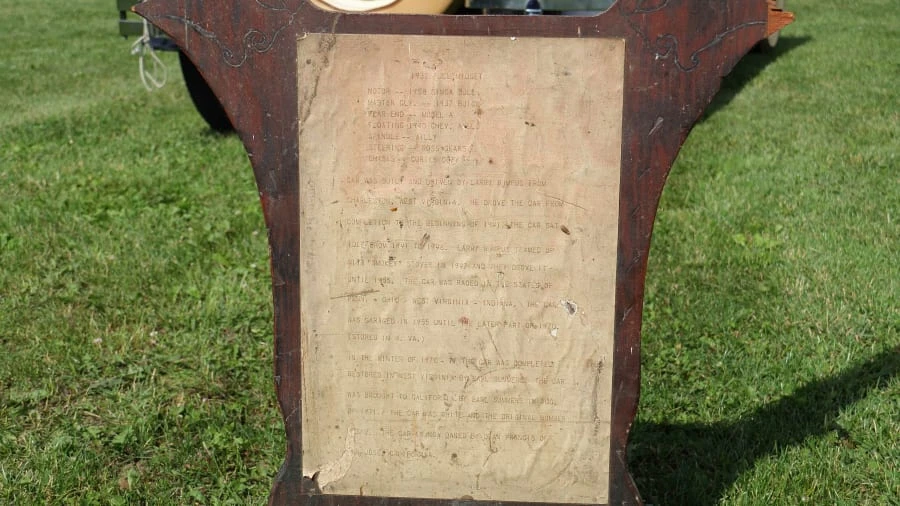 MIDGET
MOTOR -- 1938 SIMCA
MASTER CLY. -- 1937 BUICK
REAR END -- MODEL A
FLOATING 1940 CHEV.
SPINDLE --
STEERING -- ROSS GEARS
CHASIS --
CAR WAS BUILT AND DRIVEN BY LARRY BUMPUS FROM
CHARLESTON, WEST VIRGINIA. HE DROVE THE CAR FROM
COMPLETION TO THE BEGINNING OF 1941. THE CAR SAT
IDLE FROM 1941 TO 1946. LARRY BUMPUS TEAMED UP
WITH "SMOKEY" STOVER IN 1947 AND THEY DROVE IT
UNTIL 1955. THE CAR WAS RACED IN THE STATES OF
PENN. - OHIO - WEST VIRGINIA - INDIANA. THE CAR
WAS GARAGED IN 1955 UNTIL THE LATER PART OF 1970.
(STORED IN W. VA.)
IN THE WINTER OF 1970 - THE CAR WAS COMPLETELY
RESTORED IN WEST VIRGINIA BY EARL SUMMERS. THE CAR
WAS BROUGHT TO CALIFORNIA BY EARL SUMMERS IN
OF 1971. THE CAR WAS WHITE AND THE ORIGINAL NUMBER
THE CAR IS NOW OWNED BY FRANCIS OF
JOSE, CALIFORNIA.